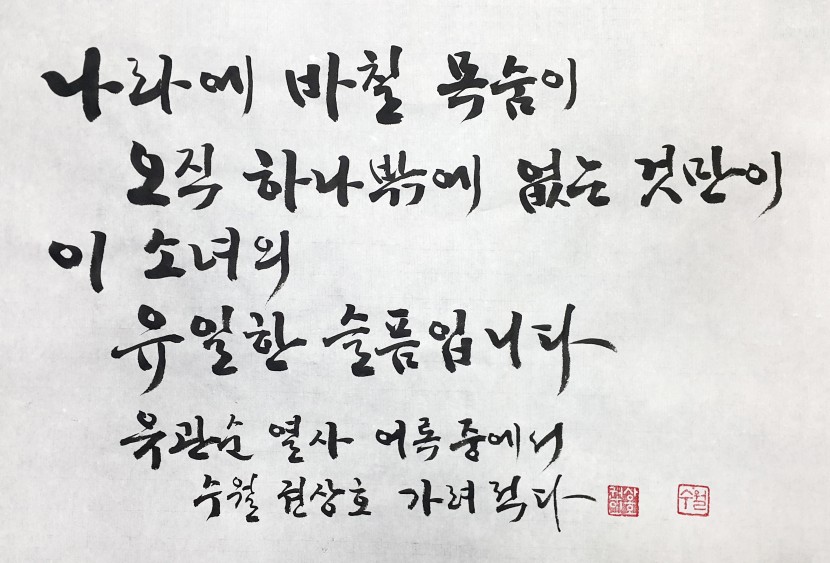 나라에 바칠 목숨이
오직 하나밖에 없는 것만이
이 소녀의
유일한 슬픔입니다
유관순 열사 어록 중에서
수월 권상호 가려 적다
수월